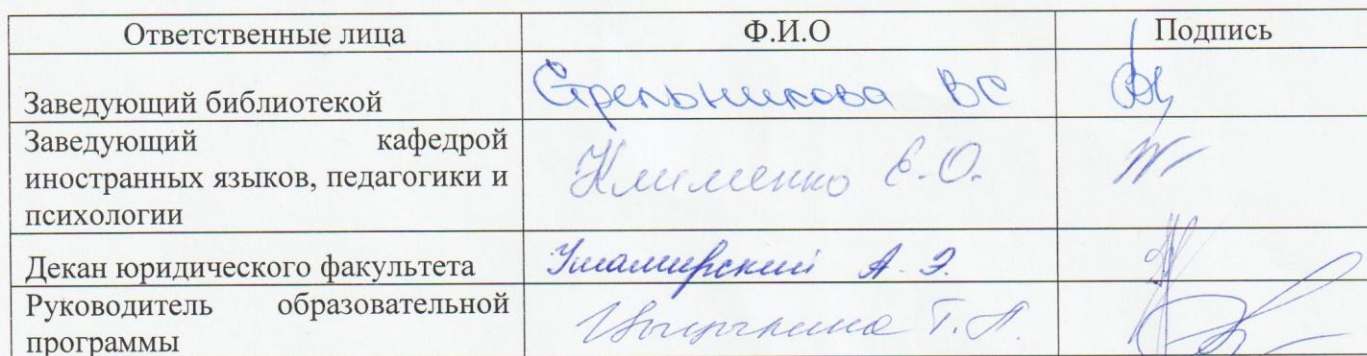 Ответственные лица Ф.И.О Подпись
Заведующий библиотекой Стрельникова ВС
Заведующий кафедрой
иностранных языков, педагогики и Клименко Е.О.
психологии
Декан юридического факультета А.Э.
Руководитель образовательной
программы Т.П.